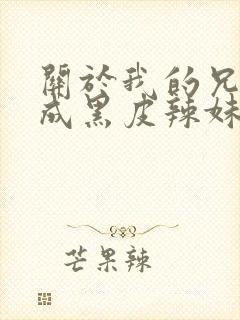 關於我的兄
成黑皮辣妹
芒果辣